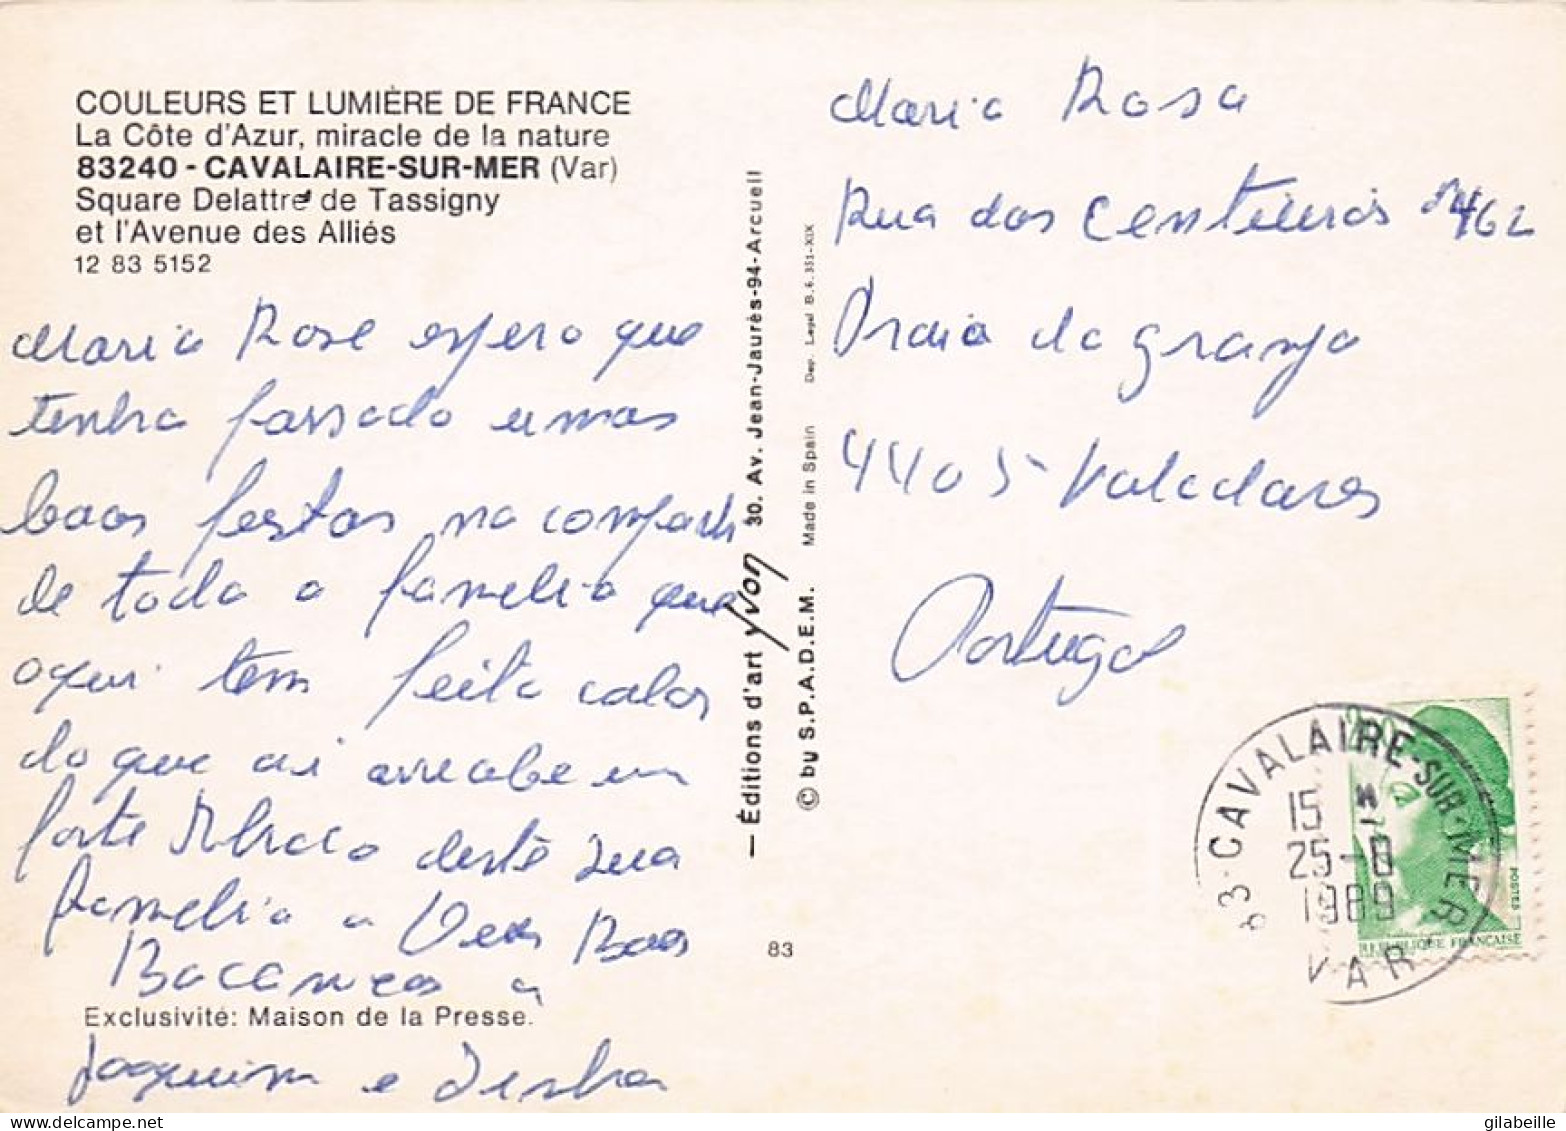 COULEURS ET LUMIÈRE DE FRANCE
La Côte d'Azur, miracle de la nature
83240 - CAVALAIRE-SUR-MER (Var)
Square Delattre de Tassigny
et l'Avenue des Alliés
12 83 5152
Maria Rose espero que
tenha passado umas
boas festas na
de toda a familia que
aqui tem feito calor
do que ai um
forte Abraco deste sua
familia a Boas
Bacances
Exclusivité: Maison de la Presse.
Joaquim e
— Éditions d'art yvon 30. Av. Jean-Jaurès-94-Arcueil
© by S.P.A.D.E.M. Made in Spain Dep. Legal B.6.351-XIX
83
Maria Rosa
Rua dos 462
Praia da granja
4405 Valadares
Portugal
83-CAVALAIRE-SUR-MER
15 H
25-8
1989
VAR
2,00
POSTES
REPUBLIQUE FRANÇAISE
gilabeille